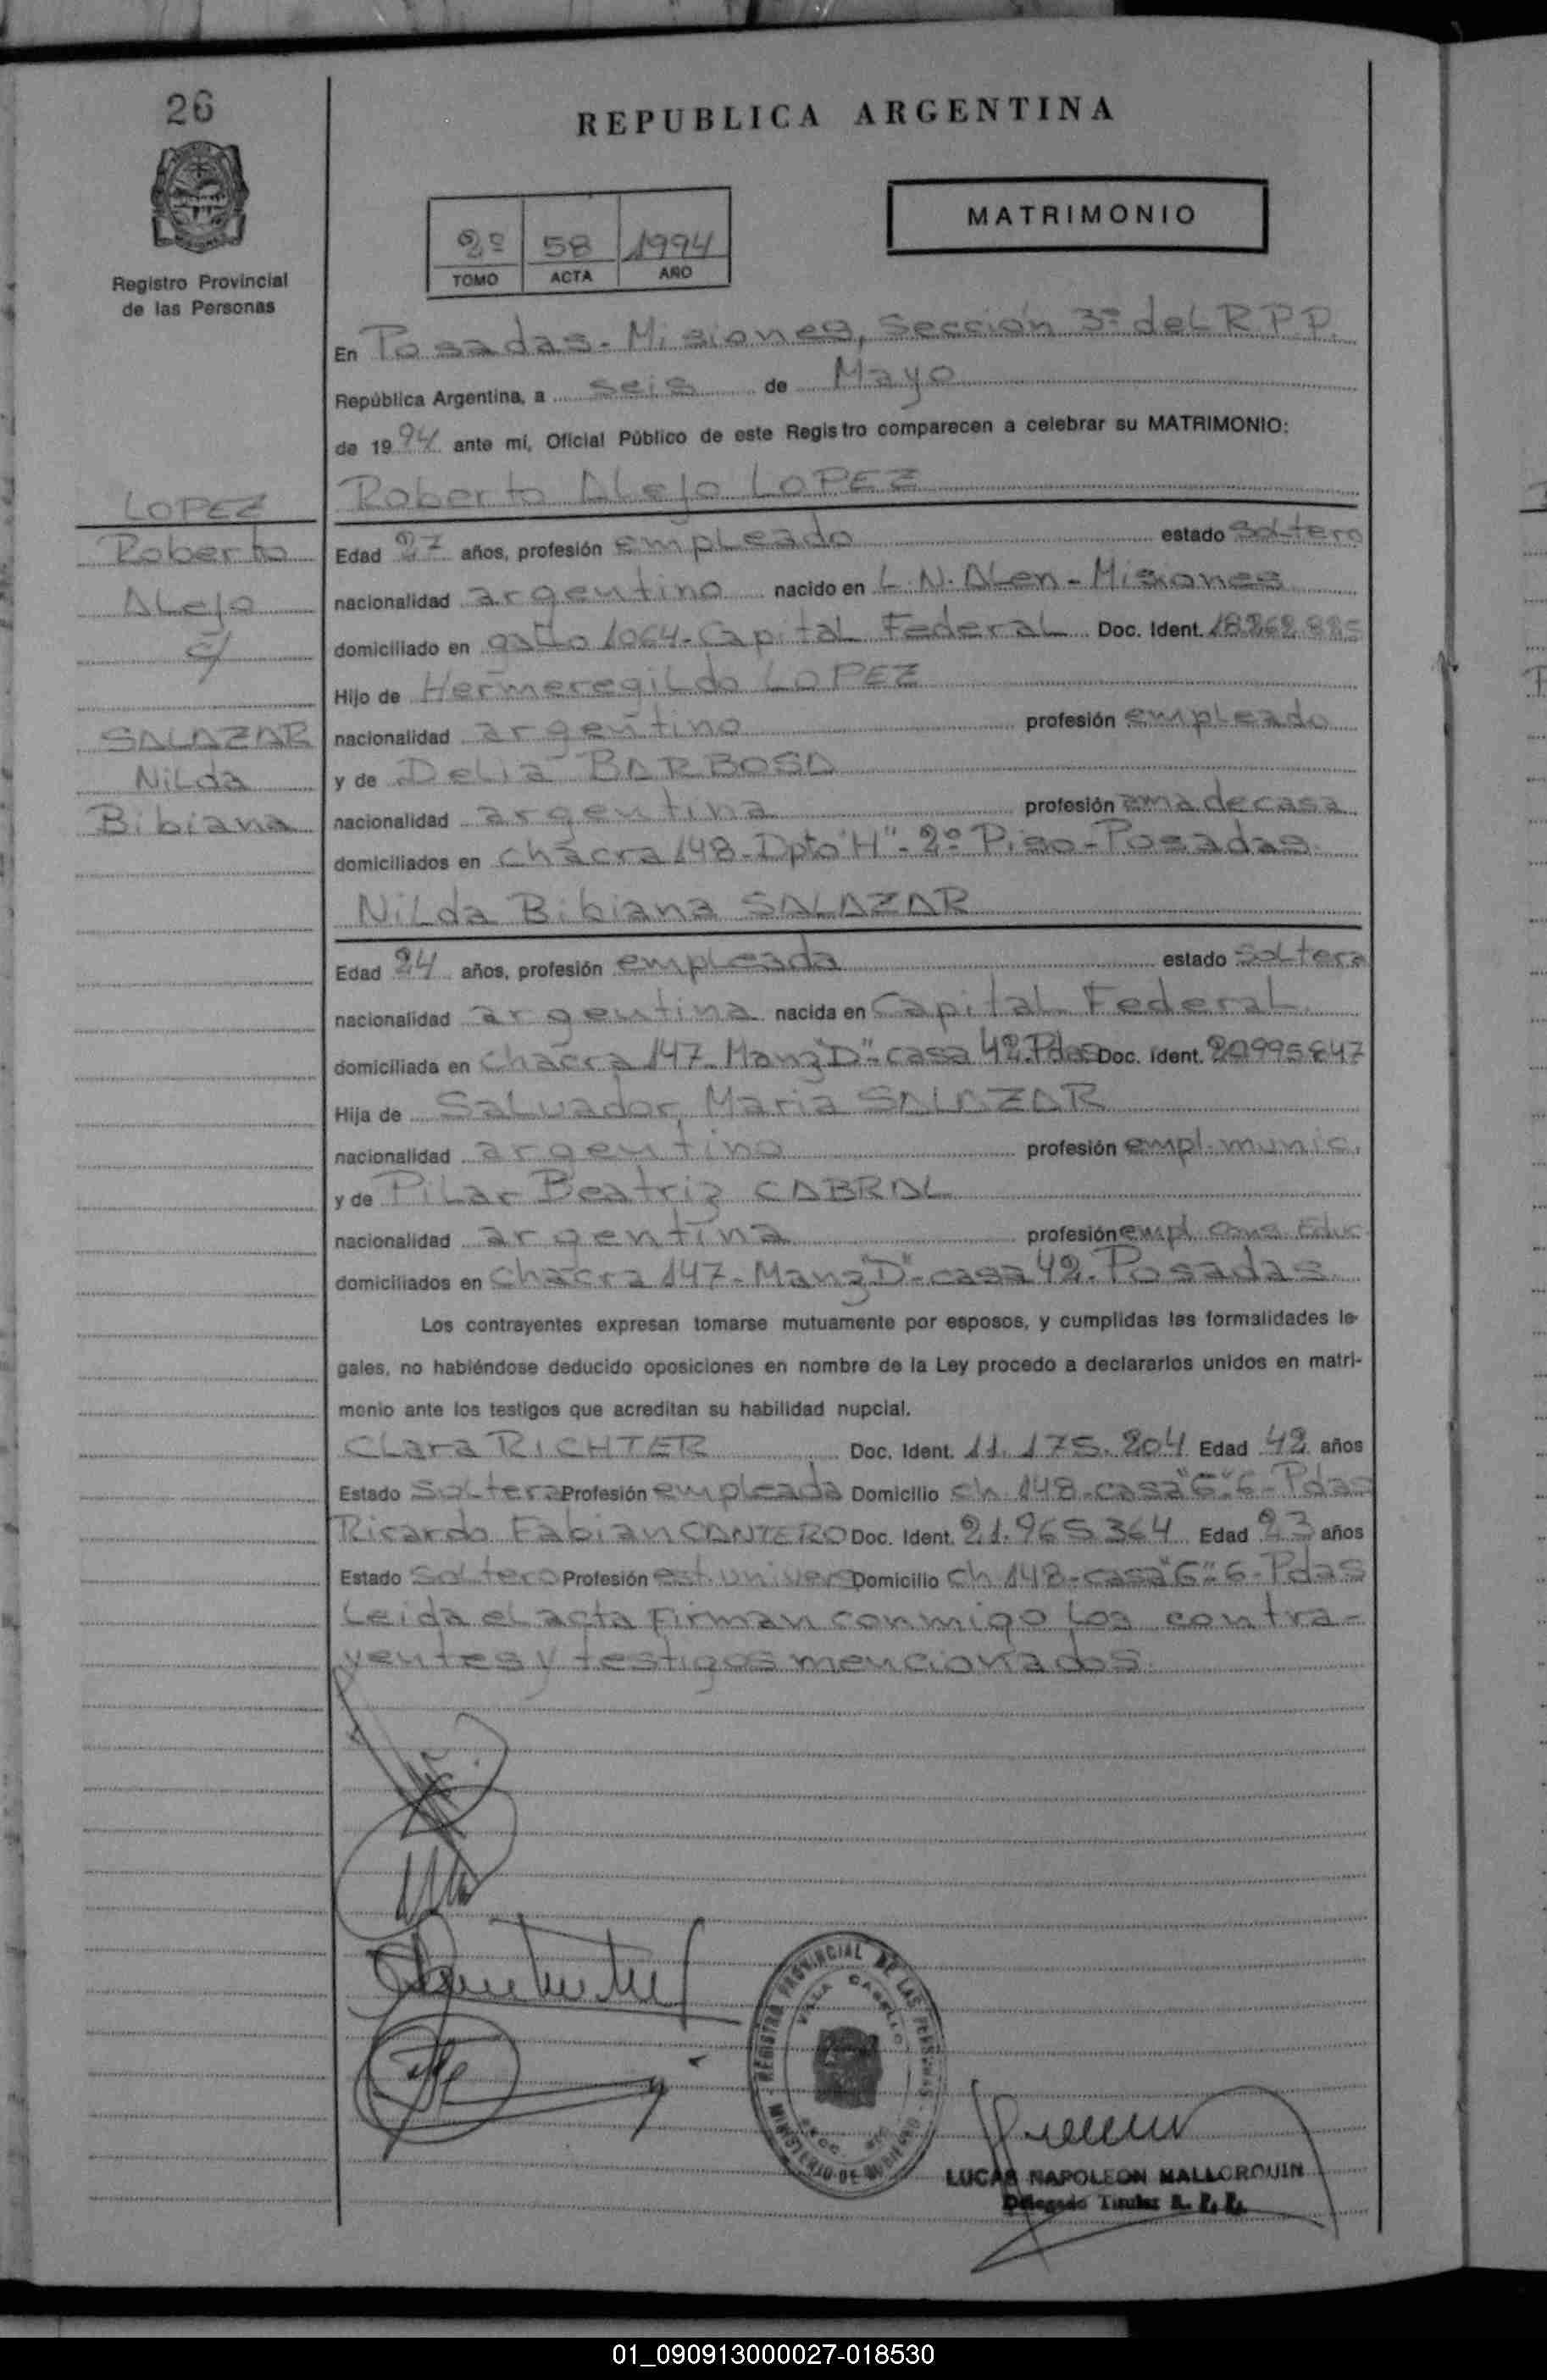 26
REPUBLICA ARGENTINA
MATRIMONIO
2º 58 1994
TOMO ACTA AÑO
Registro Provincial
de las Personas
En Posadas - Misiones, Sección 3ª del R.P.P.
República Argentina, a seis de Mayo
de 1994 ante mí, Oficial Público de este Registro comparecen a celebrar su MATRIMONIO:
LOPEZ
Roberto
Alejo
c/
SALAZAR
Nilda
Bibiana
Roberto Alejo LOPEZ
Edad 27 años, profesión empleado estado soltero
nacionalidad argentino nacido en L.N. Alen - Misiones
domiciliado en gallo 1064 - Capital Federal Doc. Ident. 18262885
Hijo de Hermeregildo LOPEZ
nacionalidad argentino profesión empleado
y de Delia BARBOSA
nacionalidad argentina profesión ama de casa
domiciliados en chacra 148 - Dpto "H" - 2º Piso - Posadas
Nilda Bibiana SALAZAR
Edad 24 años, profesión empleada estado soltera
nacionalidad argentina nacida en Capital Federal
domiciliada en chacra 147 - Manz "D" - casa 42 - Pdas Doc. Ident. 20995847
Hija de Salvador Maria SALAZAR
nacionalidad argentino profesión empl. munic.
y de Pilar Beatriz CABRAL
nacionalidad argentina profesión empl. cons. Educ
domiciliados en chacra 147 - Manz "D" - casa 42 - Posadas
Los contrayentes expresan tomarse mutuamente por esposos, y cumplidas las formalidades le-
gales, no habiéndose deducido oposiciones en nombre de la Ley procedo a declararlos unidos en matri-
monio ante los testigos que acreditan su habilidad nupcial.
Clara RICHTER Doc. Ident. 11.175.204 Edad 42 años
Estado soltera Profesión empleada Domicilio ch 148 - casa "G" 6 - Pdas
Ricardo Fabian CANTERO Doc. Ident. 21.965364 Edad 23 años
Estado soltero Profesión est. univers Domicilio ch 148 - casa "G" 6 - Pdas
Leida el acta firman conmigo los contra-
yentes y testigos mencionados.
REGISTRO PROVINCIAL DE LAS PERSONAS
VILLA CABELLO
MINISTERIO DE GOBIERNO
LUCAS NAPOLEON MALLORQUIN
Delegado Titular R. P. P.
01_090913000027-018530